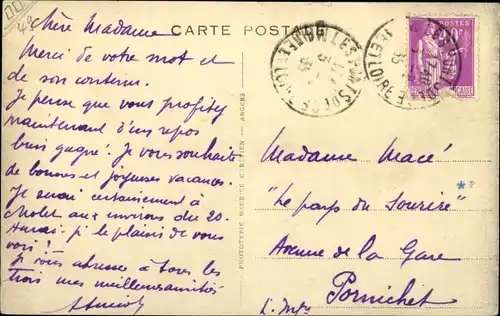 CARTE POSTALE
Chère Madame
Merci de votre mot et
de son contenu.
Je pense que vous profitez
maintenant d'un repos
bien gagné! Je vous souhaite
de bonnes et joyeuses vacances.
Je serai certainement à
aux environs du 20.
Aurai-je le plaisir de vous
voir?
Je vous adresse à tous les
trois mes meilleures amitiés
PHOTOTYPIE MAURICE CHRÉTIEN — ANGERS
LES PONTS DE CÉ
MAINE ET LOIRE
35
POSTES
Madame Macé
"Le pays du Sourire"
Avenue de la Gare
Pornichet
L. Infre